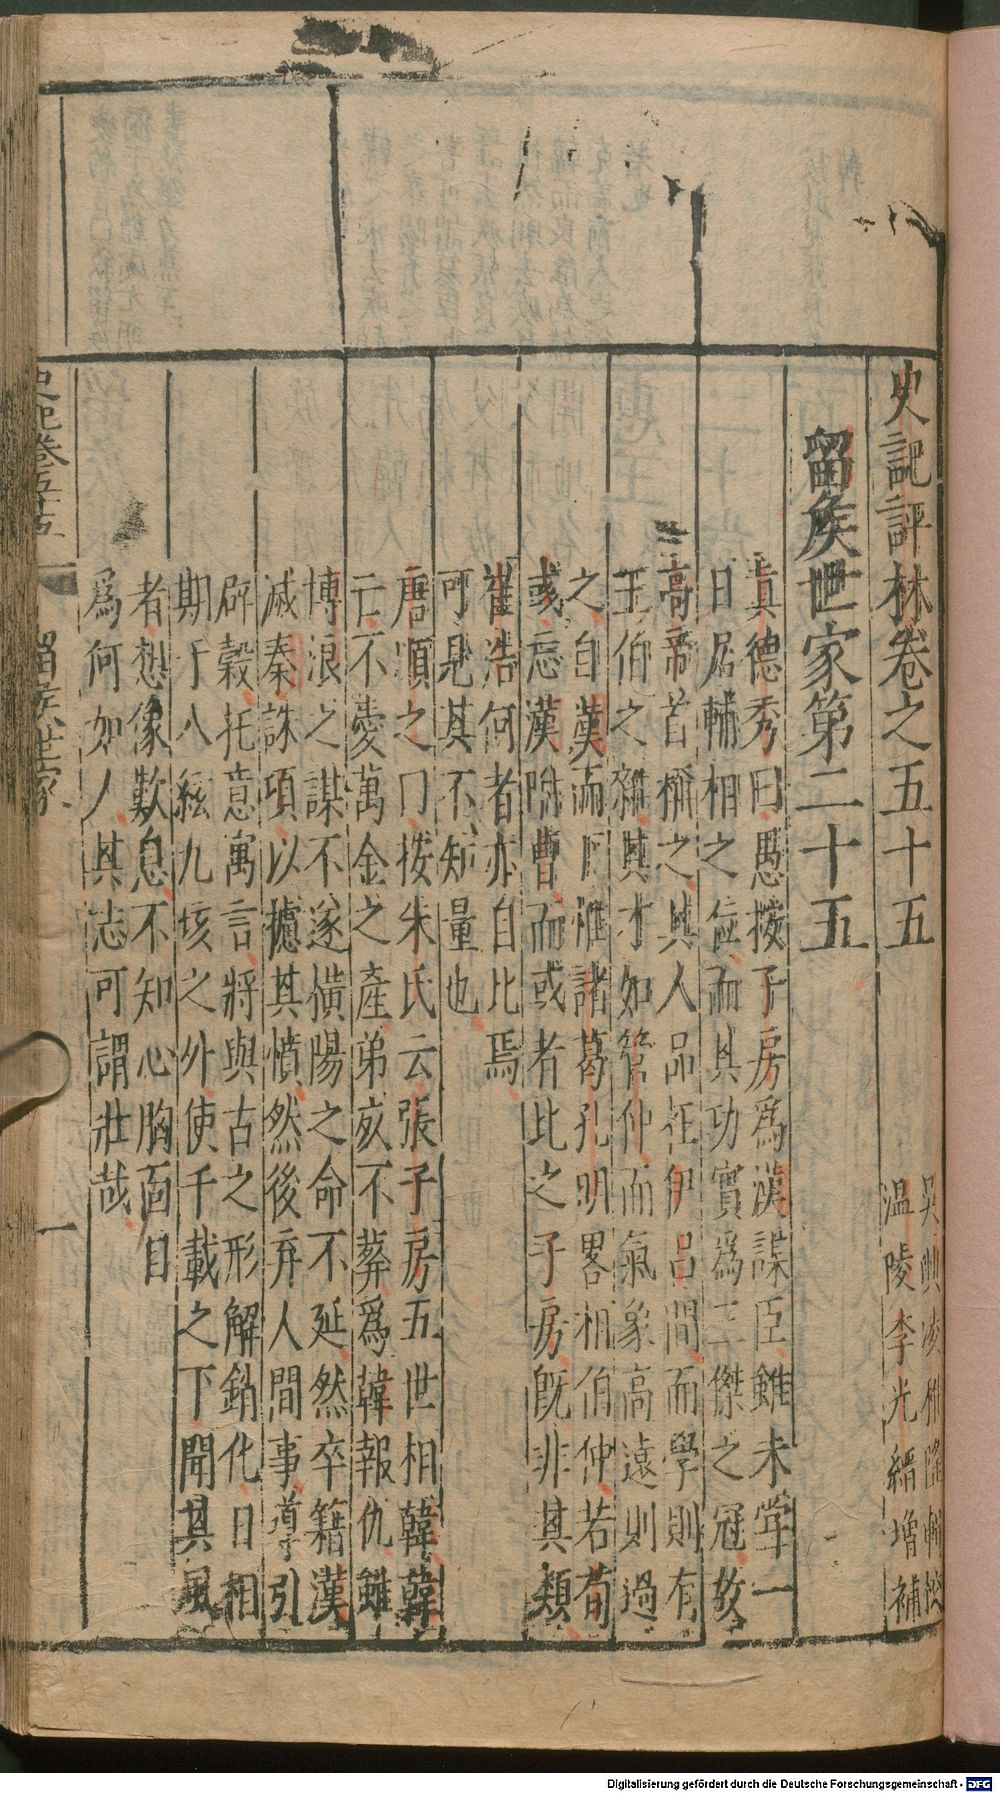 史記評林卷之五十五
吳興凌稚隆輯校
溫陵李光縉增補
留侯世家第二十五
真德秀曰愚按子房爲漢謀臣雖未嘗一
日居輔相之位而其功實爲三傑之冠故
高帝首稱之其人品在伊呂間而學則有
王伯之雜其才如管仲而氣象高遠則過
之自漢而下惟諸葛孔明畧相伯仲若荀
彧忘漢附曹而或者比之子房旣非其類
崔浩何者亦自比焉
可見其不知量也
唐順之曰按朱氏云張子房五世相韓韓
亡不愛萬金之產弟死不葬爲韓報仇雖
博浪之謀不遂橫陽之命不延然卒籍漢
滅秦誅項以攄其憤然後弃人間事導引
辟穀托意寓言將與古之形解銷化日相
期于八絃九垓之外使千載之下聞其風
者想像歎息不知心胸面目
爲何如人其志可謂壯哉
史記卷五十五
留侯世家
一
Digitalisierung gefördert durch die Deutsche Forschungsgemeinschaft - DFG